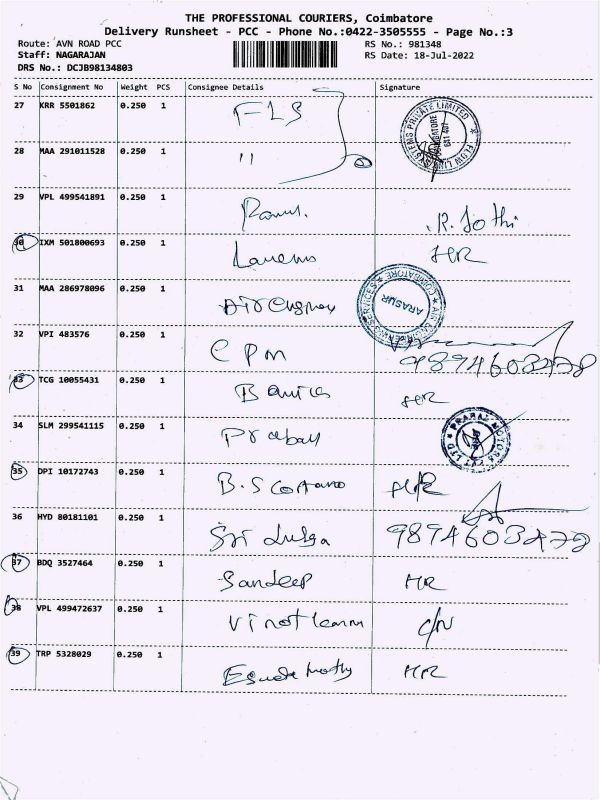 THE PROFESSIONAL COURIERS, Coimbatore
Delivery Runsheet - PCC - Phone No.:0422-3505555 - Page No.:3
Route: AVN ROAD PCC RS No.: 981348
Staff: NAGARAJAN RS Date: 18-Jul-2022
DRS No.: DCJB98134803
S No Consignment No Weight PCS Consignee Details Signature
27 KRR 5501862 0.250 1 FLS
28 MAA 291011528 0.250 1 "
29 VPL 499541891 0.250 1 R. Jothi
30 IXM 501800693 0.250 1
31 MAA 286978096 0.250 1 ARASUR
32 VPI 483576 0.250 1 CPM 9894603478
33 TCG 10055431 0.250 1
34 SLM 299541115 0.250 1
35 DPI 10172743 0.250 1 B.S
36 HYD 80181101 0.250 1 Sri 9894603478
37 BDQ 3527464 0.250 1 Sandeep
38 VPL 499472637 0.250 1 C/N
39 TRP 5328029 0.250 1